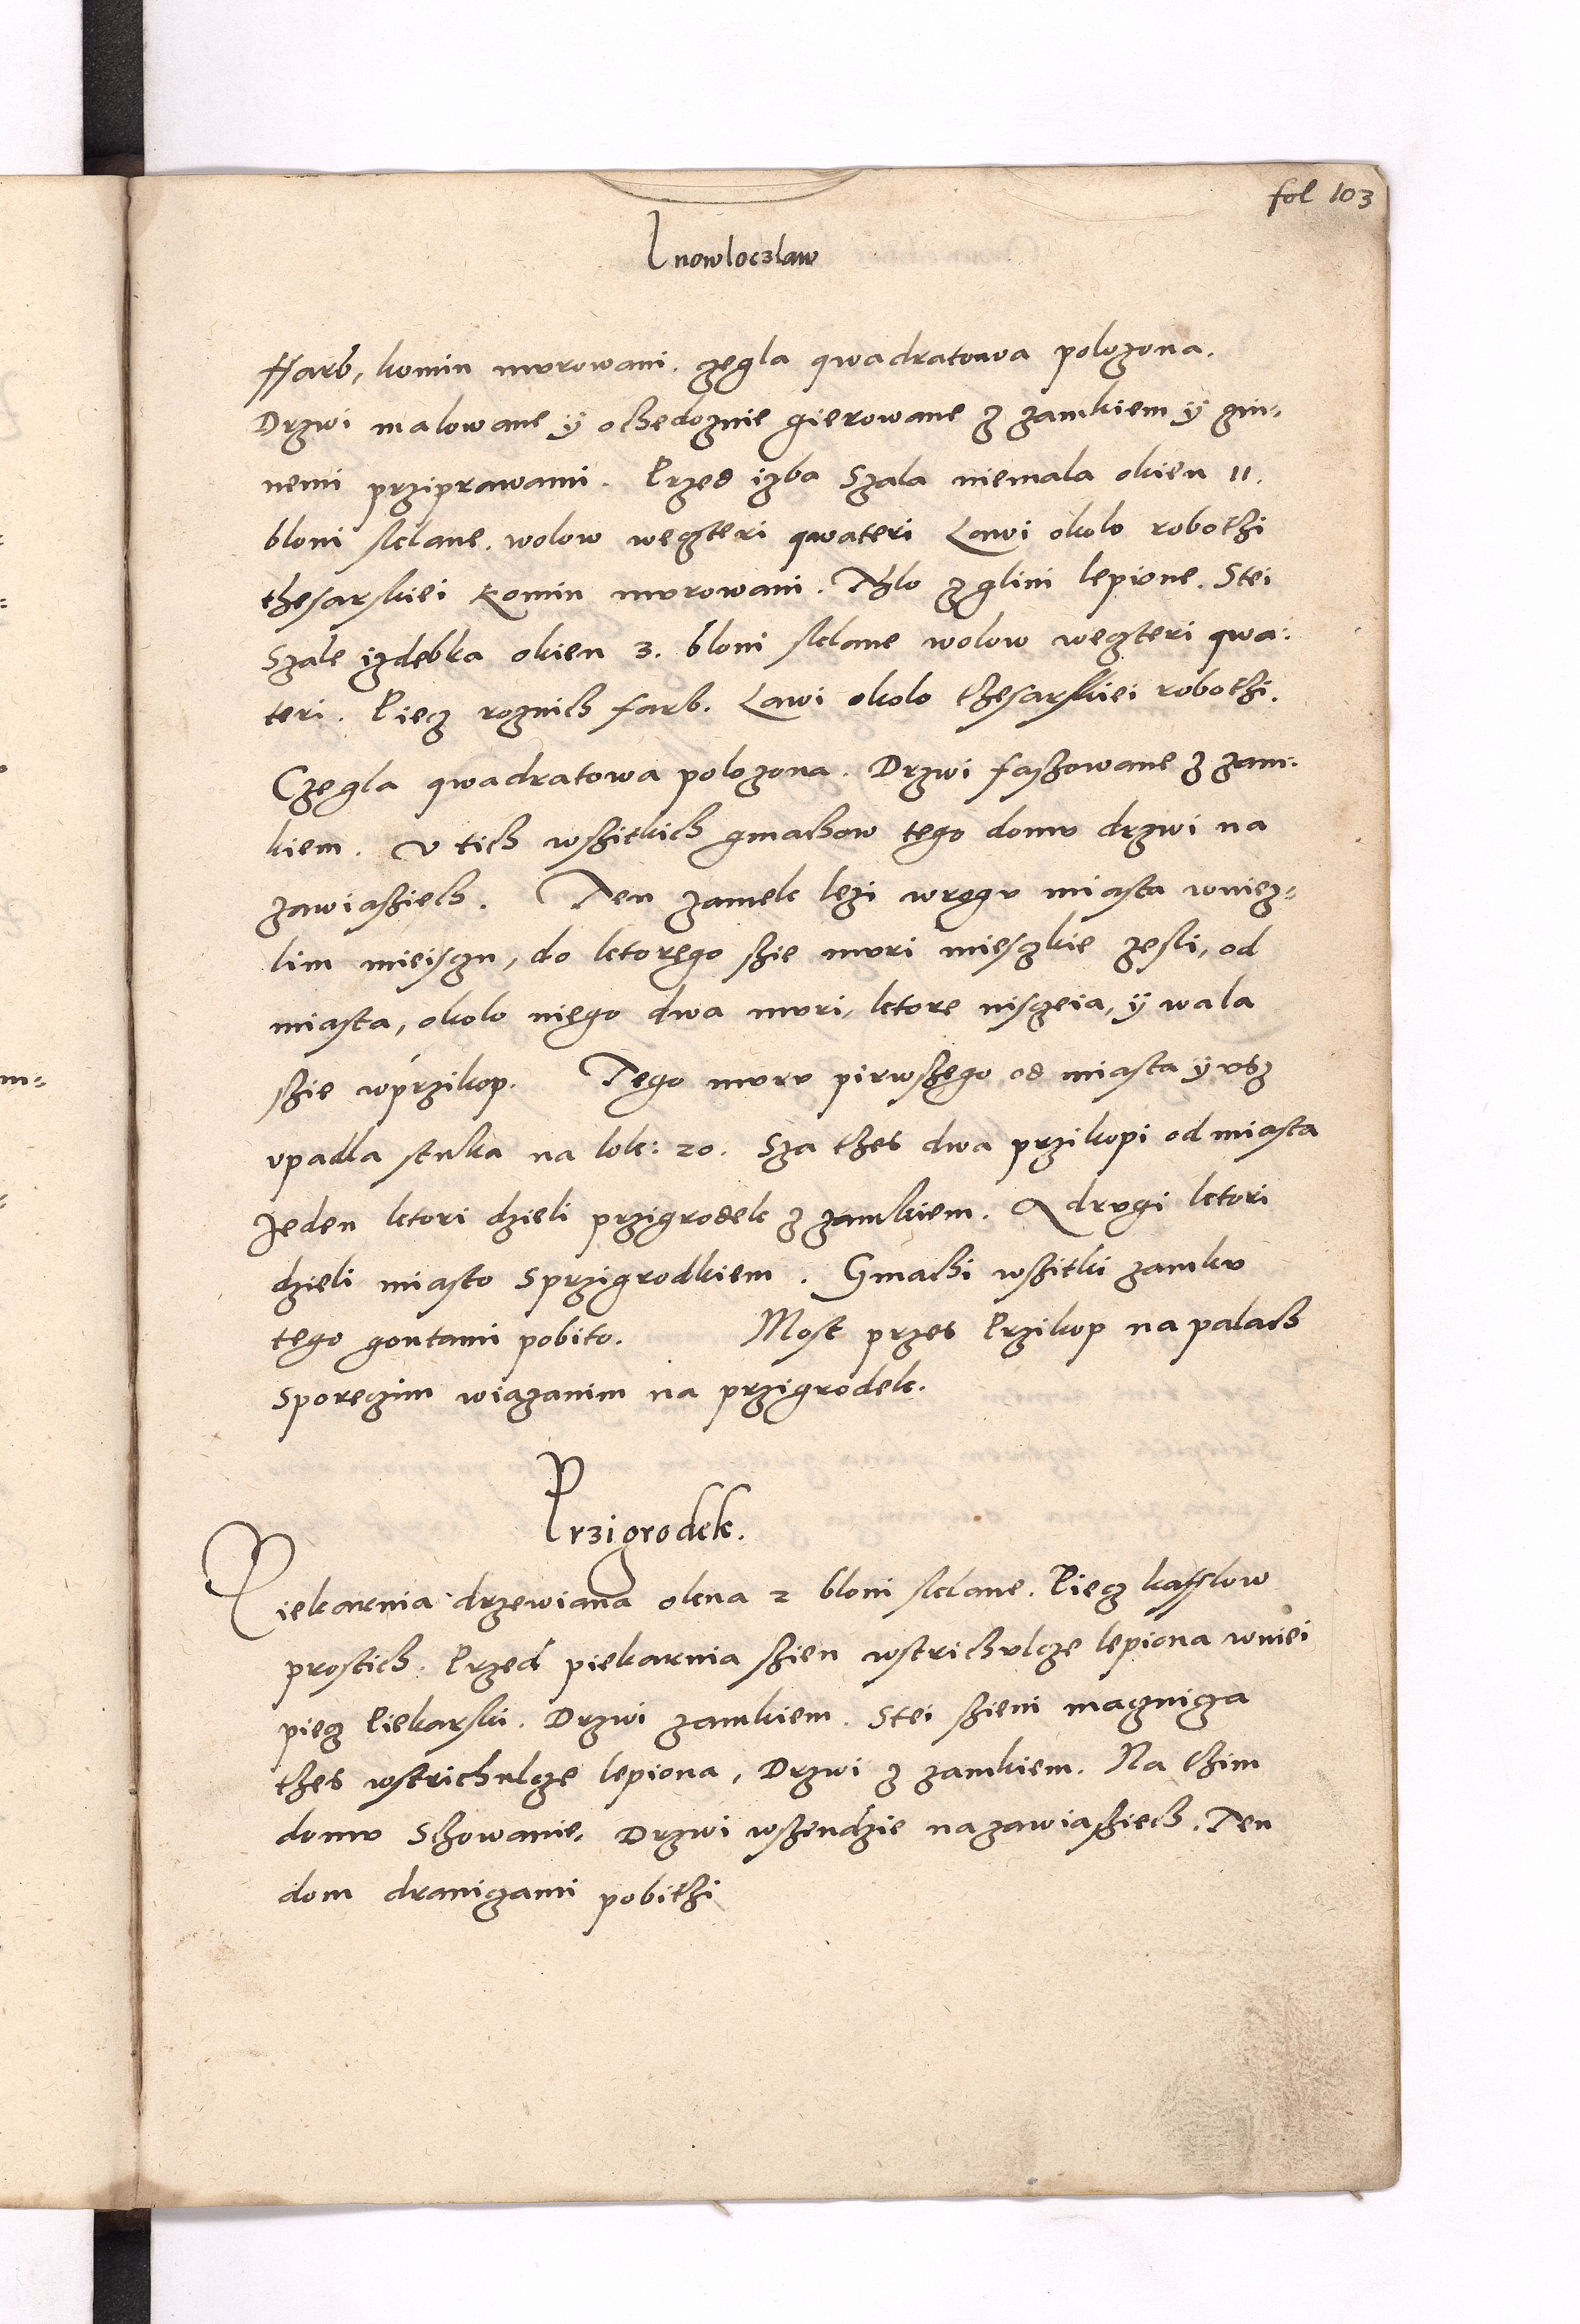 fol 103
Inowloczlaw
ffarb, komin mvrowani. zegla qwadratowa polozona.
Drzwi malowane ÿ ochedoznie gierowane z zamkiem ÿ zin-
nemi prziprawami. Przed izba Szala niemala okien 11.
bloni sklane. wolow wegzteri qwateri Lawi okolo robothi
thesarskiei Komin mvrowani. Thlo z glini lepione. Stei
Szale izdebka okien 3. bloni sklane wolow wegzteri qwa-
teri. Piecz roznich farb. Lawi okolo thesarskiei robothi.
Czegla qwadratowa polozona. Drzwi faszowane z zam-
kiem. v tich wszitkich gmachow tego domv drzwi na
zawiasziech. Ten zamek lezi wrogv miasta wniez-
lim mieisczu, do ktorego szie mvri miesczkie zesli, od
miasta, okolo niego dwa mvri, ktore nisczeia, ÿ wala
szie wprzikop. Tego mvrv pirwszego od miasta ÿ vsz
vpadla stuka na lok: 20. Sza thes dwa przikopi od miasta
Jeden ktori dzieli przigrodek z zamkiem. A drvgi ktori
dzieli miasto Sprzigrodkiem. Gmachi wszitki zamkv
tego gontami pobito. Most przes Przikop na palach
Sporeczim wiazanim na przigrodek.
Przigrodek.
Piekarnia drzewiana okna 2 bloni sklane. Piecz kafflow
prostich. Przed piekarnia szien wstrichvlcze lepiona wniei
piecz Piekarski. Drzwi zamkiem. Stei szieni maczniza
thes wstrichulcze lepiona, Drzwi z zamkiem. Na thim
domv Schowanie. Drzwi wszendzie na zawiaszech. Ten
dom dranizami pobithi